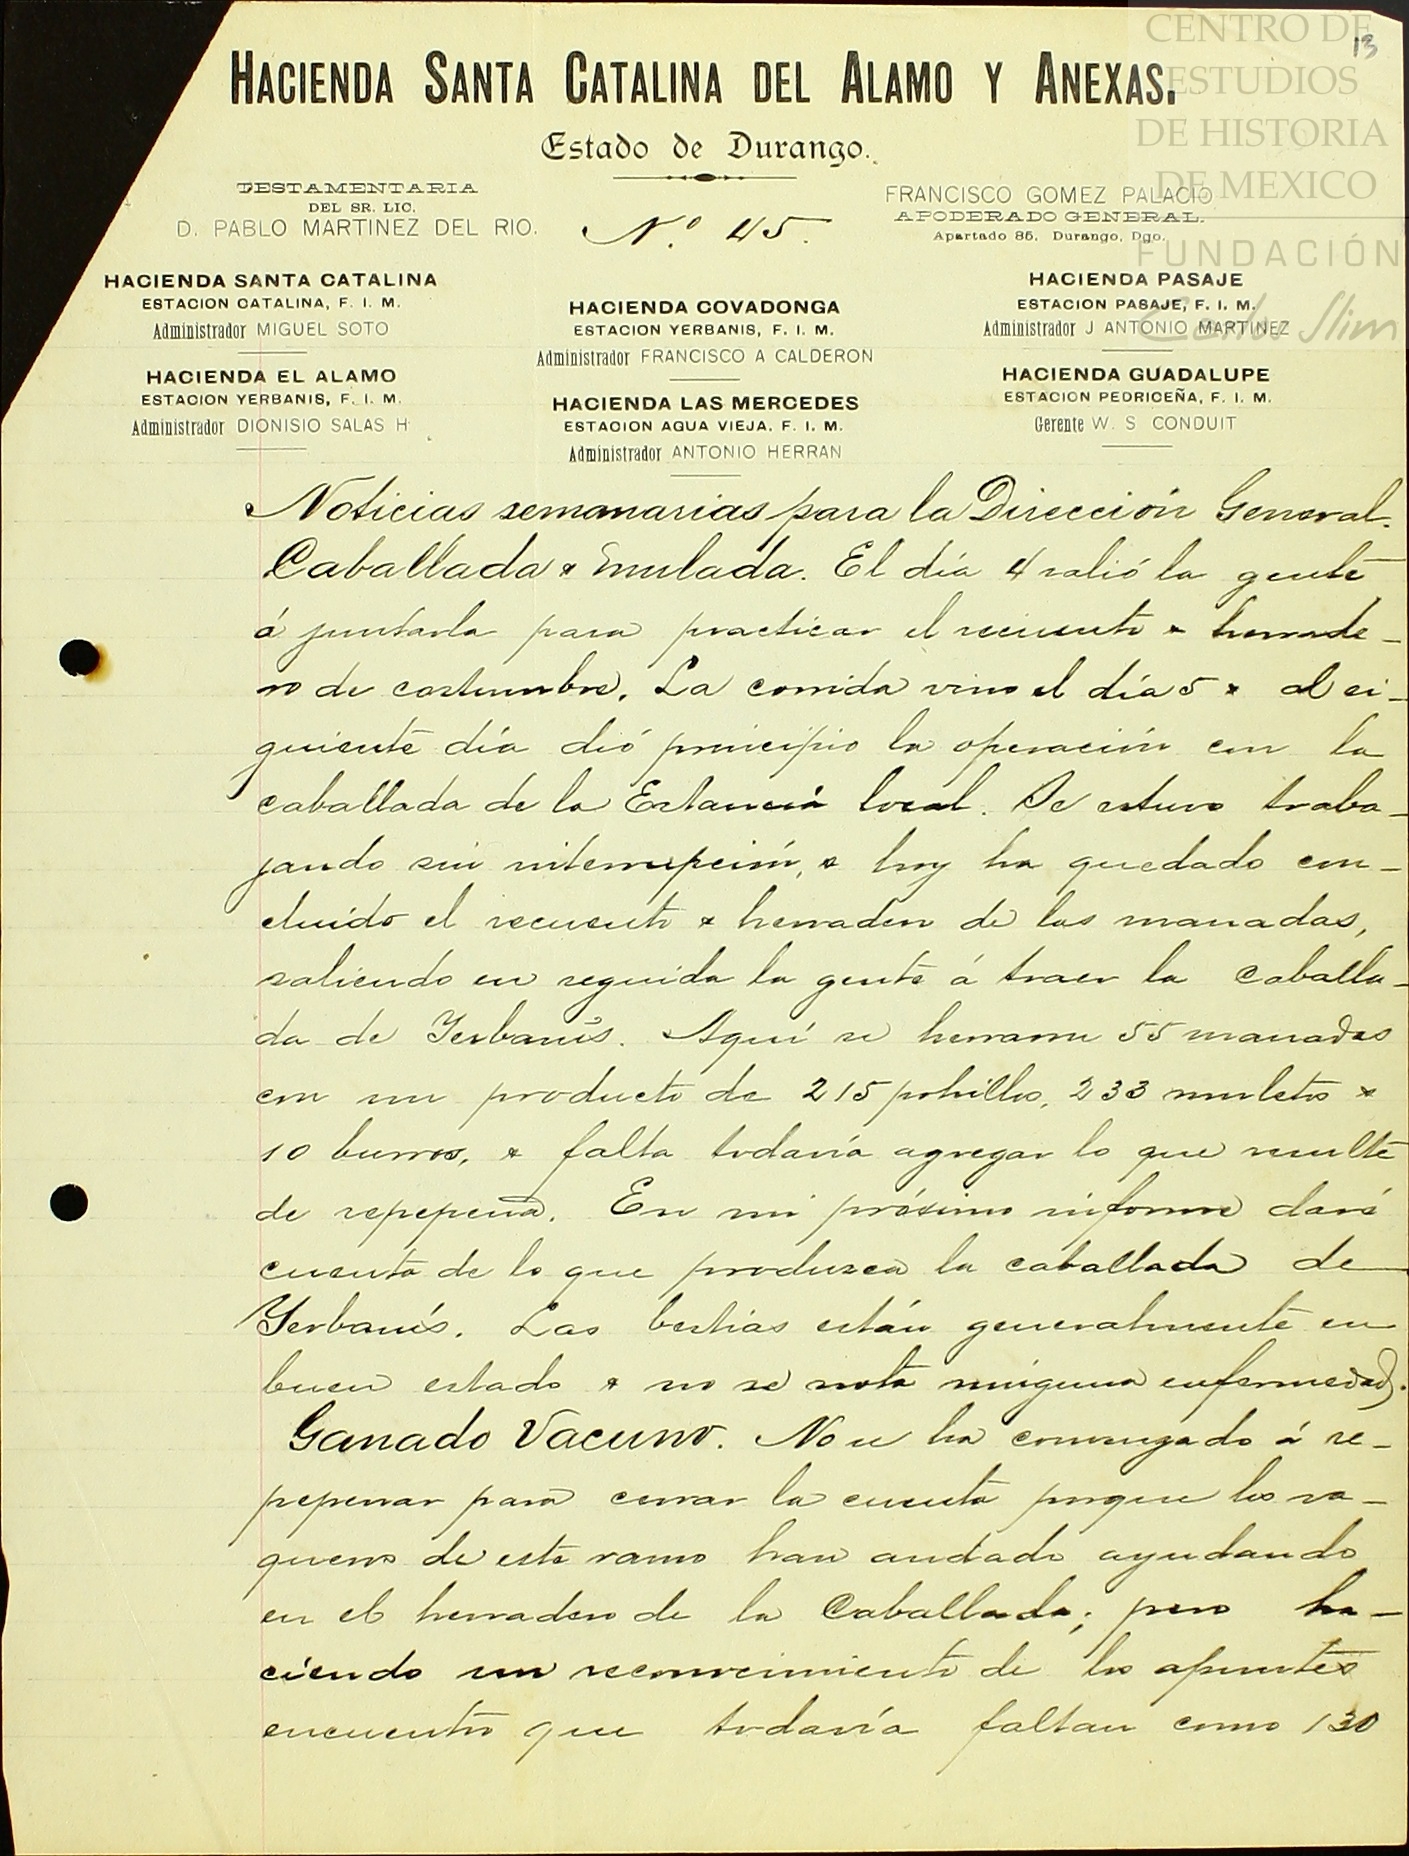 CENTRO DE
ESTUDIOS
DE HISTORIA
DE MEXICO
FUNDACIÓN
Carlos Slim
13
HACIENDA SANTA CATALINA DEL ALAMO Y ANEXAS.
Estado de Durango.
TESTAMENTARIA
DEL SR. LIC.
D. PABLO MARTINEZ DEL RIO.
N.º 45.
FRANCISCO GOMEZ PALACIO
APODERADO GENERAL.
Apartado 85, Durango, Dgo.
HACIENDA SANTA CATALINA
ESTACION CATALINA, F. I. M.
Administrador MIGUEL SOTO
HACIENDA EL ALAMO
ESTACION YERBANIS, F. I. M.
Administrador DIONISIO SALAS H
HACIENDA COVADONGA
ESTACION YERBANIS, F. I. M.
Administrador FRANCISCO A CALDERON
HACIENDA LAS MERCEDES
ESTACION AGUA VIEJA, F. I. M.
Administrador ANTONIO HERRAN
HACIENDA PASAJE
ESTACION PASAJE, F. I. M.
Administrador J ANTONIO MARTINEZ
HACIENDA GUADALUPE
ESTACION PEDRICEÑA, F. I. M.
Gerente W. S CONDUIT
Noticias semanarias para la Dirección General.
Caballada & mulada. El día 4 salió la gente
á juntarla para practicar el recuento & herrade-
ro de costumbre. La corrida vino el día 5 & al si-
guiente día dió principio la operación con la
caballada de la Estancia local. Se estuvo traba-
jando sin interrupción, & hoy ha quedado con-
cluido el recuento & herradero de las manadas,
saliendo en seguida la gente á traer la caballa-
da de Yerbanís. Aquí se herraron 55 manadas
con un producto de 215 potrillos, 233 muletos &
10 burros, & falta todavía agregar lo que resulte
de repepena. En mi próximo informe daré
cuenta de lo que produzca la caballada de
Yerbanís. Las bestias están generalmente en
buen estado & no se nota ninguna enfermedad.
Ganado Vacuno. No se ha comenzado á re-
pepenar para cerrar la cuenta porque los va-
queros de este ramo han andado ayudando
en el herradero de la Caballada; pero ha-
ciendo un reconocimiento de los apuntes
encuentro que todavía faltan como 130